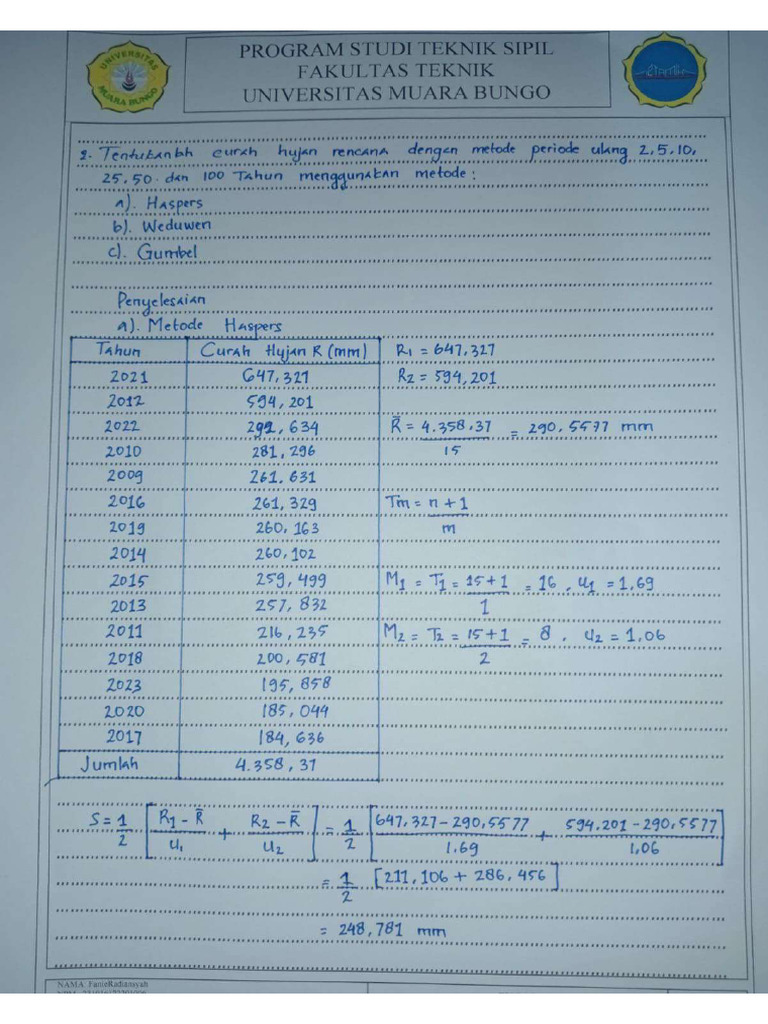 PROGRAM STUDI TEKNIK SIPIL
FAKULTAS TEKNIK
UNIVERSITAS MUARA BUNGO
UNIVERSITAS
MUARA BUNGO
2. Tentukanlah curah hujan rencana dengan metode periode ulang 2, 5, 10,
25, 50 dan 100 Tahun menggunakan metode :
a). Haspers
b). Weduwen
c). Gumbel
Penyelesaian
a). Metode Haspers
Tahun Curah Hujan R (mm) R1 = 647,327
2021 647,327 R2 = 594,201
2012 594,201
2022 292,634 R̄ = 4.358,37 / 15 = 290,5577 mm
2010 281,296
2009 261.631
2016 261,329 Tm = n + 1 / m
2019 260,163
2014 260,102
2015 259,499 M1 = T1 = 15 + 1 / 1 = 16 , u1 = 1,69
2013 257,832
2011 216,235 M2 = T2 = 15 + 1 / 2 = 8 , u2 = 1,06
2018 200,581
2023 195,858
2020 185,044
2017 184,636
Jumlah 4.358,37
S = 1/2 [ R1 - R̄ / u1 + R2 - R̄ / u2 ] = 1/2 [ 647,327 - 290,5577 / 1.69 + 594.201 - 290,5577 / 1,06 ]
= 1/2 [ 211,106 + 286,456 ]
= 248,781 mm
NAMA: FanieRadiansyah